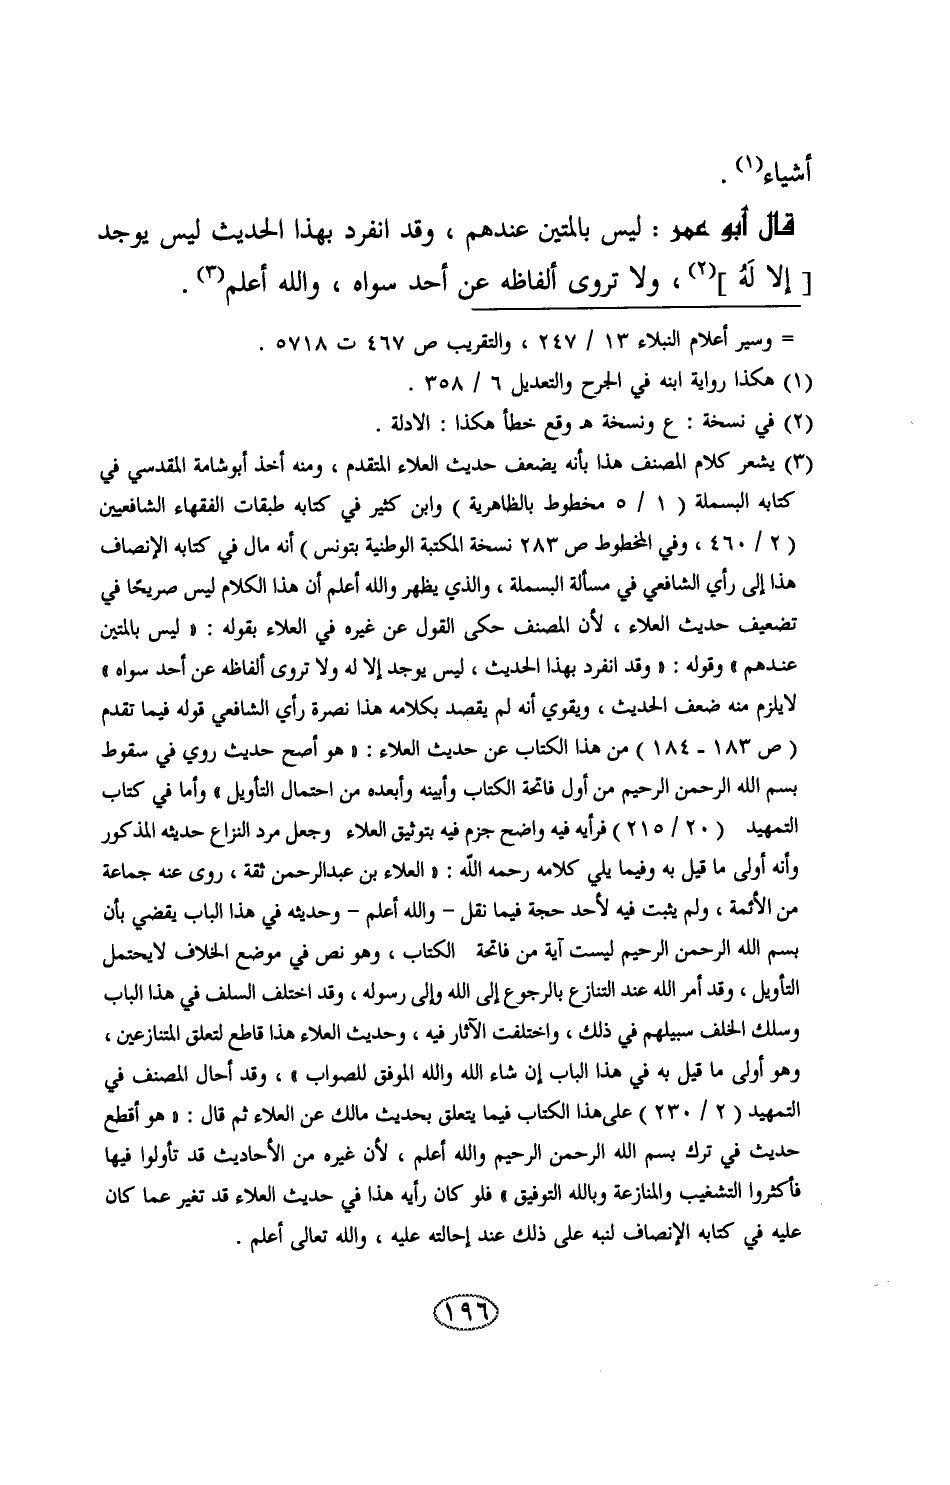 أشياء(١) .
قال أبو عمر : ليس بالمتين عندهم ، وقد انفرد بهذا الحديث ليس يوجد
[ إلا لَهُ ](٢) ، ولا تروى ألفاظه عن أحد سواه ، والله أعلم(٣) .
= وسير أعلام النبلاء ١٣ / ٢٤٧ ، والتقريب ص ٤٦٧ ت ٥٧١٨ .
(١) هكذا رواية ابنه في الجرح والتعديل ٦ / ٣٥٨ .
(٢) في نسخة : ع ونسخة هـ وقع خطأ هكذا : الادلة .
(٣) يشعر كلام المصنف هذا بأنه يضعف حديث العلاء المتقدم ، ومنه أخذ أبوشامة المقدسي في
كتابه البسملة ( ١ / ٥ مخطوط بالظاهرية ) وابن كثير في كتابه طبقات الفقهاء الشافعيين
( ٢ / ٤٦٠ ، وفي المخطوط ص ٢٨٣ نسخة المكتبة الوطنية بتونس ) أنه مال في كتابه الإنصاف
هذا إلى رأي الشافعي في مسألة البسملة ، والذي يظهر والله أعلم أن هذا الكلام ليس صريحًا في
تضعيف حديث العلاء ، لأن المصنف حكى القول عن غيره في العلاء بقوله : « ليس بالمتين
عندهم » وقوله : « وقد انفرد بهذا الحديث ، ليس يوجد إلا له ولا تروى ألفاظه عن أحد سواه »
لايلزم منه ضعف الحديث ، ويقوي أنه لم يقصد بكلامه هذا نصرة رأي الشافعي قوله فيما تقدم
( ص ١٨٣ - ١٨٤ ) من هذا الكتاب عن حديث العلاء : « هو أصح حديث روي في سقوط
بسم الله الرحمن الرحيم من أول فاتحة الكتاب وأبينه وأبعده من احتمال التأويل » وأما في كتاب
التمهيد ( ٢٠ / ٢١٥ ) فرأيه فيه واضح جزم فيه بتوثيق العلاء وجعل مرد النزاع حديثه المذكور
وأنه أولى ما قيل به وفيما يلي كلامه رحمه اللّه : « العلاء بن عبدالرحمن ثقة ، روى عنه جماعة
من الأئمة ، ولم يثبت فيه لأحد حجة فيما نقل - والله أعلم - وحديثه في هذا الباب يقضي بأن
بسم الله الرحمن الرحيم ليست آية من فاتحة الكتاب ، وهو نص في موضع الخلاف لايحتمل
التأويل ، وقد أمر الله عند التنازع بالرجوع إلى الله وإلى رسوله ، وقد اختلف السلف في هذا الباب
وسلك الخلف سبيلهم في ذلك ، واختلفت الآثار فيه ، وحديث العلاء هذا قاطع لتعلق المتنازعين ،
وهو أولى ما قيل به في هذا الباب إن شاء الله والله الموفق للصواب » ، وقد أحال المصنف في
التمهيد ( ٢ / ٢٣٠ ) على هذا الكتاب فيما يتعلق بحديث مالك عن العلاء ثم قال : « هو أقطع
حديث في ترك بسم الله الرحمن الرحيم والله أعلم ، لأن غيره من الأحاديث قد تأولوا فيها
فأكثروا التشغيب والمنازعة وبالله التوفيق » فلو كان رأيه هذا في حديث العلاء قد تغير عما كان
عليه في كتابه الإنصاف لنبه على ذلك عند إحالته عليه ، والله تعالى أعلم .
١٩٦